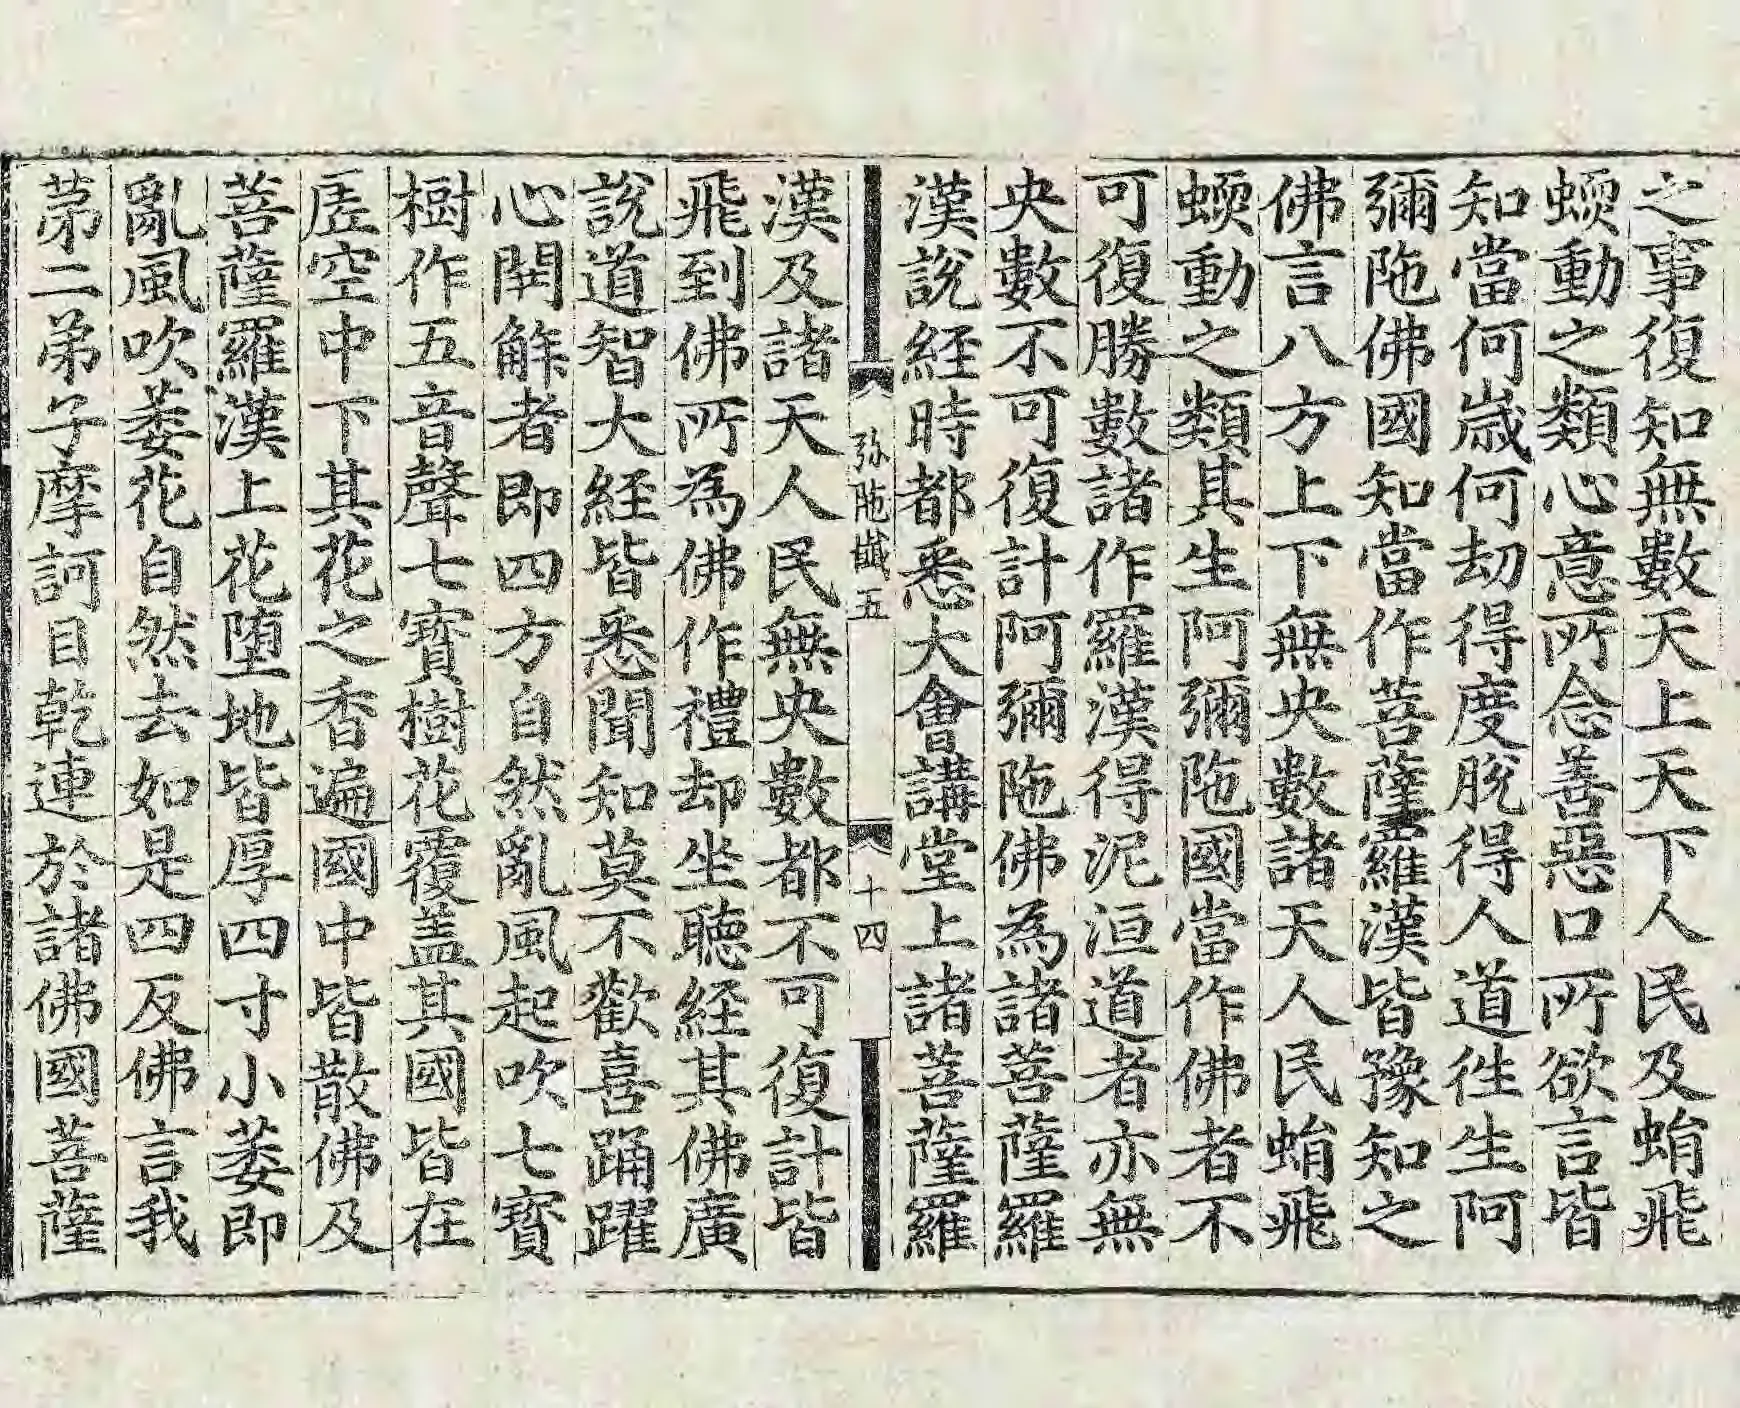 之事復知無數天上天下人民及蜎飛
蝡動之類心意所念善惡口所欲言皆
知當何歲何劫得度脫得人道徃生阿
彌陁佛國知當作菩薩羅漢皆豫知之
佛言八方上下無央數諸天人民蜎飛
蝡動之類其生阿彌陁國當作佛者不
可復勝數諸作羅漢得泥洹道者亦無
央數不可復計阿彌陁佛為諸菩薩羅
漢說經時都悉大會講堂上諸菩薩羅
弥陁懴五
十四
漢及諸天人民無央數都不可復計皆
飛到佛所為佛作禮却坐聽經其佛廣
說道智大經皆悉聞知莫不歡喜踊躍
心開解者即四方自然亂風起吹七寶
樹作五音聲七寶樹花覆盖其國皆在
虗空中下其花之香遍國中皆散佛及
菩薩羅漢上花墮地皆厚四寸小萎即
亂風吹萎花自然去如是四反佛言我
苐二弟子摩訶目乾連於諸佛國菩薩